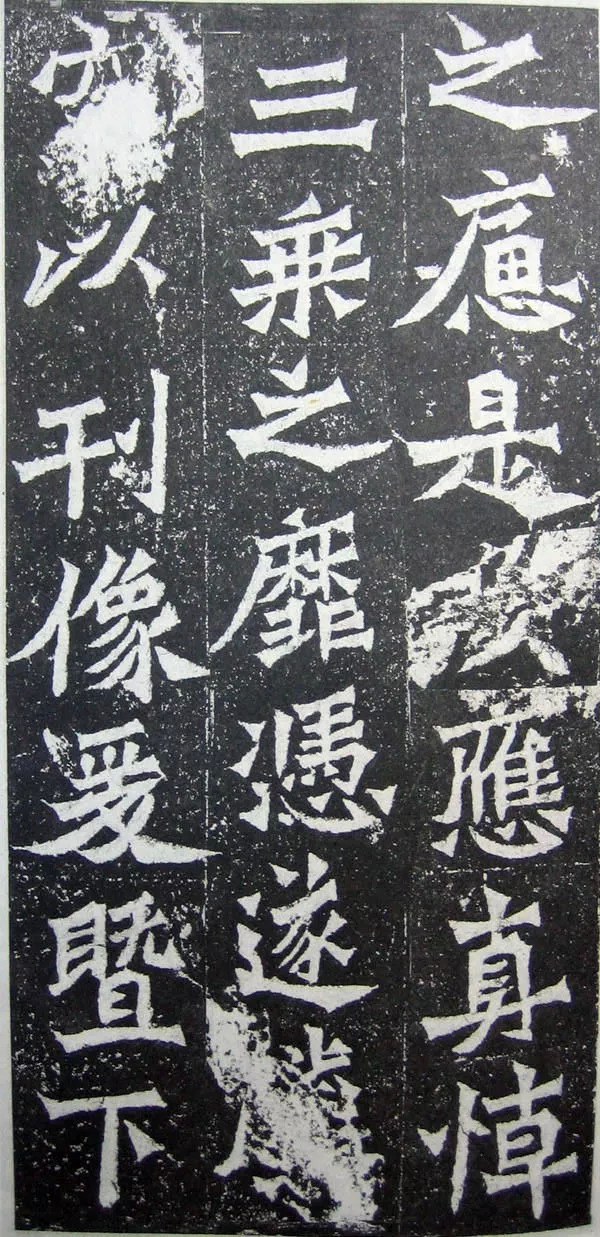 之是以應真悼
三乘之靡憑遂
以刊像爰暨下